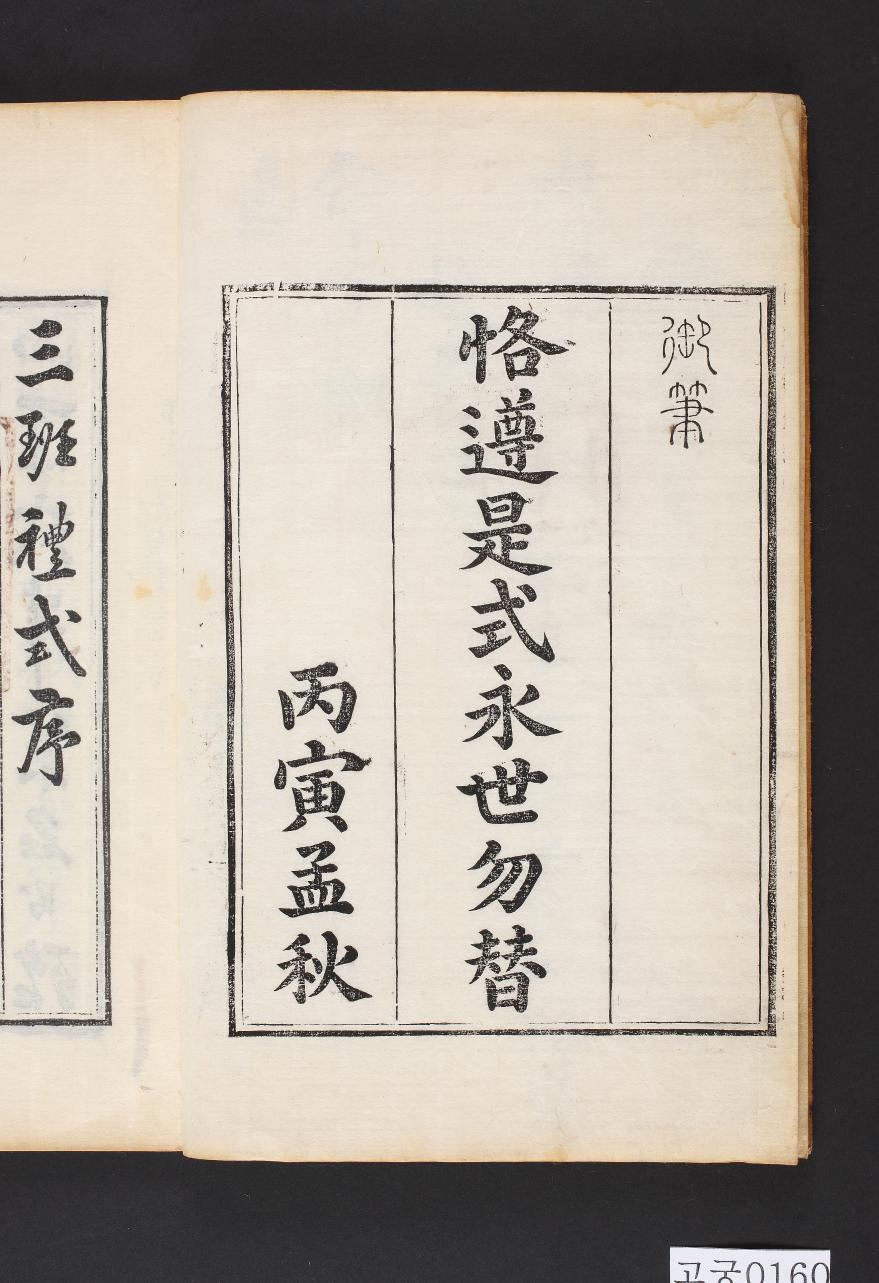 御筆
恪遵是式永世勿替
丙寅孟秋
三班禮式序
고궁0160